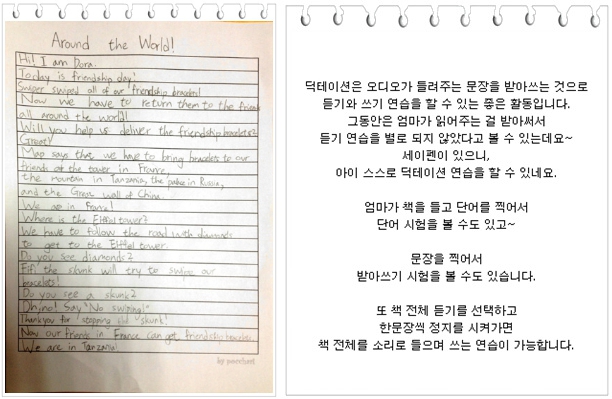 Around the World!
Hi! I am Dora.
Today is friendship day!
Swiper swiped all of our friendship bracelets!
Now we have to return them to the friends
all around the world!
Will you help us deliver the friendship bracelets?
Great!
Map says that we have to bring bracelets to our
friends at the tower in France,
the mountain in Tanzania, the palace in Russia,
and the Great wall of China.
We are in France!
Where is the Eiffel tower?
We have to follow the road with diamonds
to get to the Eiffel tower.
Do you see diamonds?
Fifi the skunk will try to swipe our
bracelets!
Do you see a skunk?
Oh,no! Say "No swiping!"
Thank you for stopping the skunk!
Now our friends in France can get friendship bracelets
We are in Tanzania!
딕테이션은 오디오가 들려주는 문장을 받아쓰는 것으로
듣기와 쓰기 연습을 할 수 있는 좋은 활동입니다.
그동안은 엄마가 읽어주는 걸 받아써서
듣기 연습을 별로 되지 않았다고 볼 수 있는데요~
세이펜이 있으니,
아이 스스로 딕테이션 연습을 할 수 있네요.
엄마가 책을 들고 단어를 찍어서
단어 시험을 볼 수도 있고~
문장을 찍어서
받아쓰기 시험을 볼 수도 있습니다.
또 책 전체 듣기를 선택하고
한문장씩 정지를 시켜가면
책 전체를 소리로 들으며 쓰는 연습이 가능합니다.